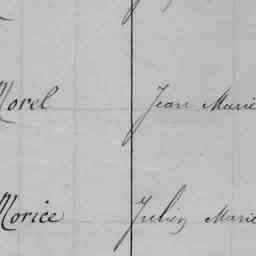 Morel Jean Marie
Morice Julien Marie